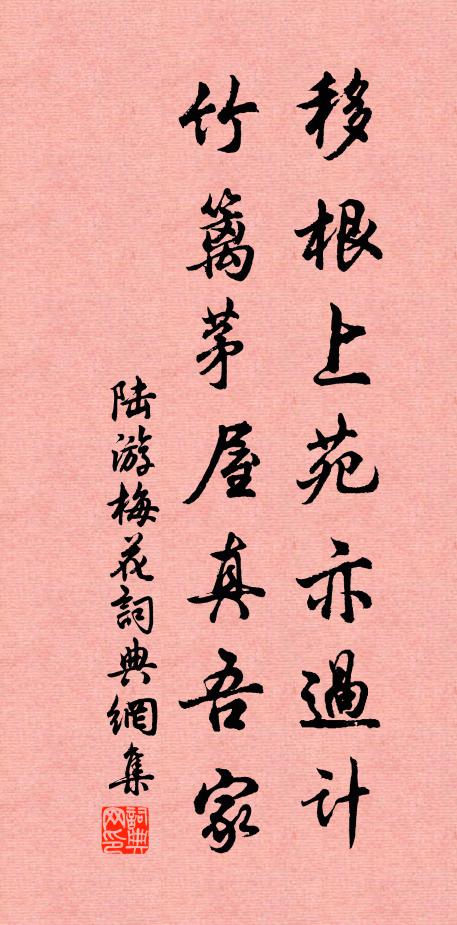 移根上苑亦過计
竹篱茅屋真吾家
陆游梅花詞典網集
詞典网印